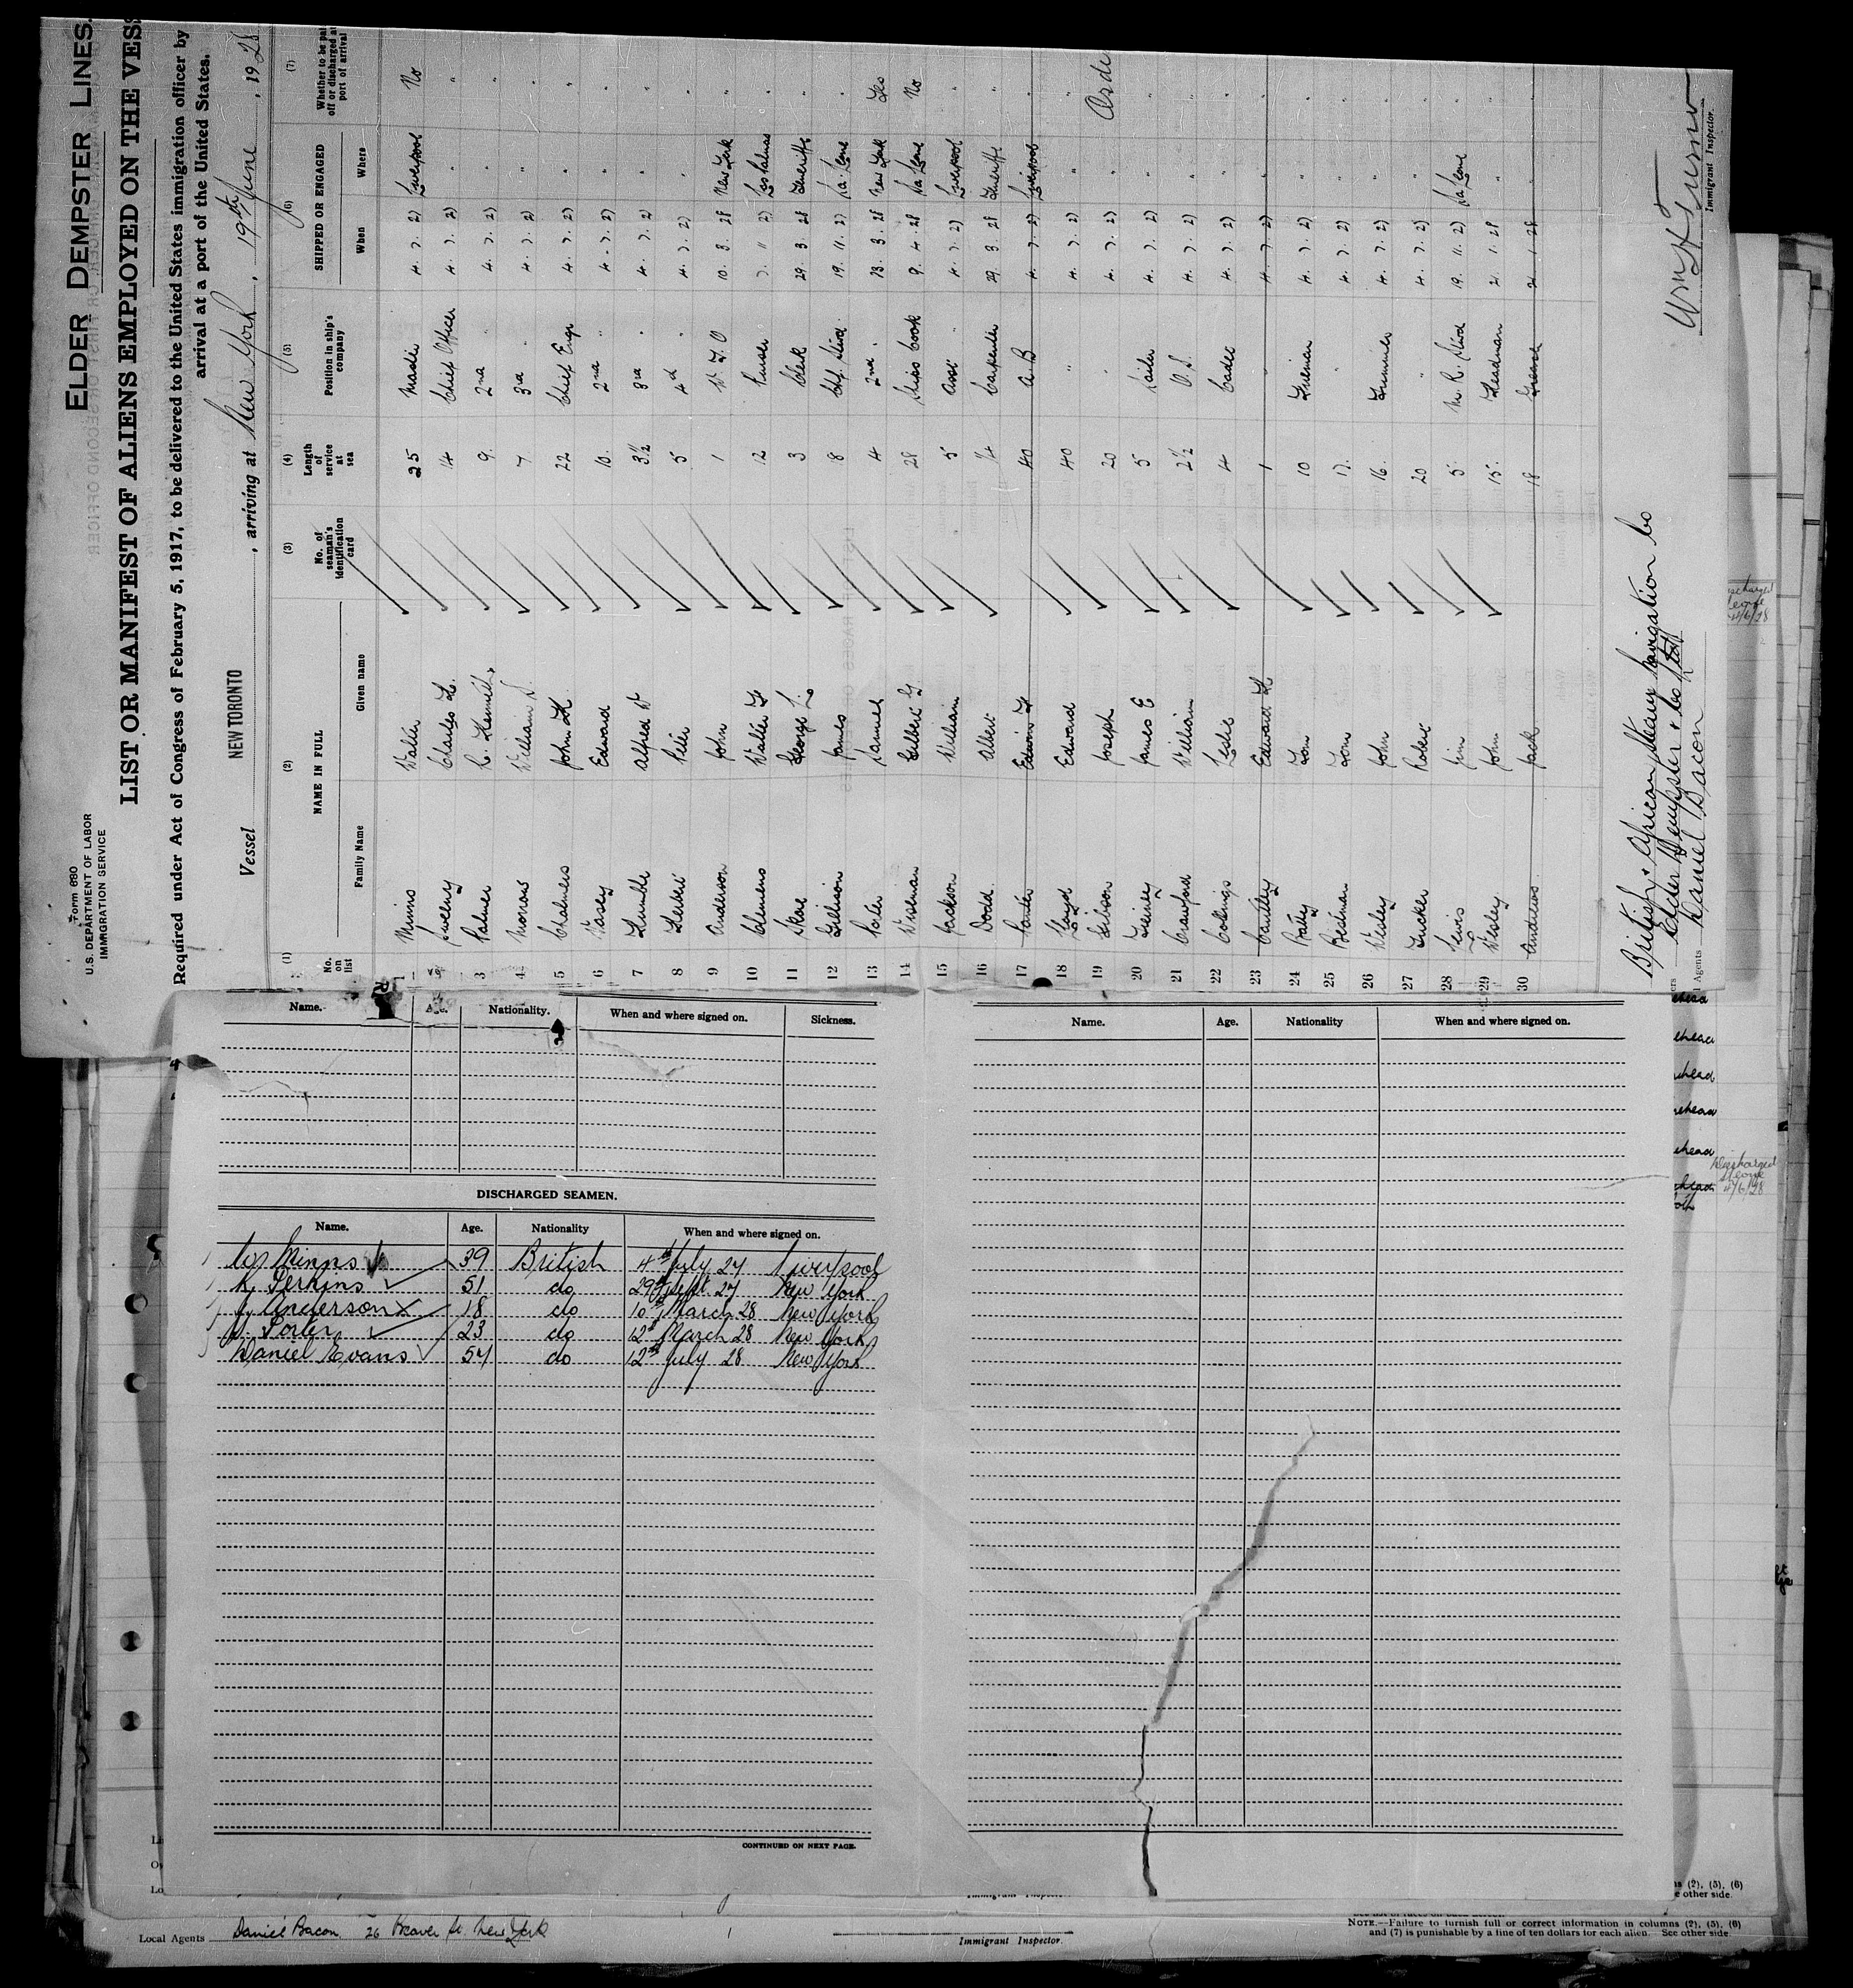 ELDER DEMPSTER LINES.
Form 680
U.S. DEPARTMENT OF LABOR
IMMIGRATION SERVICE
LIST OR MANIFEST OF ALIENS EMPLOYED ON THE VES
Required under Act of Congress of February 5, 1917, to be delivered to the United States immigration officer by
arrival at a port of the United States.
Vessel NEW TORONTO, arriving at New York, 19th June, 1928
(1) (2) (3) (4) (5) (6) (7)
No. on list NAME IN FULL No. of seaman's identification card Length of service at sea Position in ship's company SHIPPED OR ENGAGED Whether to be pai off or discharged at port of arrival
Family Name Given name When Where
1 Minns Walter 25 Master 4. 7. 27 Liverpool No
2 Sweeny Charles H. 14 Chief Officer 4. 7. 27 "
3 Palmer R. 9 2nd " 4. 7. 27 " "
4 William 7 3rd 4. 7. 27 " "
5 Chalmers John H. 22 Chief Engr 4. 7. 27 " "
6 Vasey Edward 10 2nd " 4. 7. 27 " "
7 Humble Alfred W 3½ 3rd " 4. 7. 27 " "
8 Herbert Peter 5 4th " 4. 7. 27 " "
9 Anderson John 1 W.T.O 10. 3. 28 New York "
10 Clemens Walter F 12 Purser 7. 11 27 Las Palmas "
11 George L. 3 Clerk 29. 3. 28 Teneriffe "
12 James 8 Ch. Stwd. 19. 11. 27 Sa. Leone "
13 Porter Samuel 4 2nd " 13. 3. 28 New York Yes
14 Wiseman Gilbert G 28 Ships Cook 9. 4. 28 Sa Leone No
15 Jackson William 5 Asst " 4. 7. 27 Liverpool "
16 Dodd Albert 14 Carpenter 29. 3. 28 Teneriffe "
17 Edwin F 40 A.B 4. 7. 27 Liverpool "
18 Lloyd Edward 40 " 4. 7. 27 " "
19 Gibson Joseph 20 " 4. 7. 27 "
20 James E 5 Sailor 4. 7. 27 " "
21 Crawford William 2½ O.S. 4. 7. 27 " "
22 Collings Leslie 4 Cadet 4. 7. 27 " "
23 Edward H 1 " 4. 7. 27 " "
24 Tom 10 Fireman 4. 7. 27 " "
25 Tom 17. " 4. 7. 27 " "
26 Wesley John 16. Trimmer 4. 7. 27 " "
27 Tucker Robert 20 " 4. 7. 27 " "
28 Lewis Jim 5. M.R. Stwd 19. 11. 27 Sa Leone "
29 Wesley John 15. Headman 21. 1. 28 " "
30 Andrews Jack 18 21. 1. 28 "
British & African Steam Navigation Co
Elder Dempster & Co Ltd
Agents Daniel Bacon
Immigrant Inspector.
Name. Age. Nationality. When and where signed on. Sickness.
DISCHARGED SEAMEN.
Name. Age. Nationality When and where signed on.
W Minns 39 British 4th July 27 Liverpool
H. Perkins 51 do 29th Sept. 27 New York
J. Anderson 18 do 10th March 28 New York
S. Porter 23 do 12th March 28 New York
Daniel Evans 57 do 12th July 28 New York
CONTINUED ON NEXT PAGE.
Name. Age. Nationality When and where signed on.
Discharged
Leone
4/6/28
Immigrant Inspector.
s (2), (5), (6)
e other side.
Local Agents Daniel Bacon 26 Beaver St. New York
Immigrant Inspector.
NOTE.—Failure to furnish full or correct information in columns (2), (5), (6)
and (7) is punishable by a fine of ten dollars for each alien. See other side.